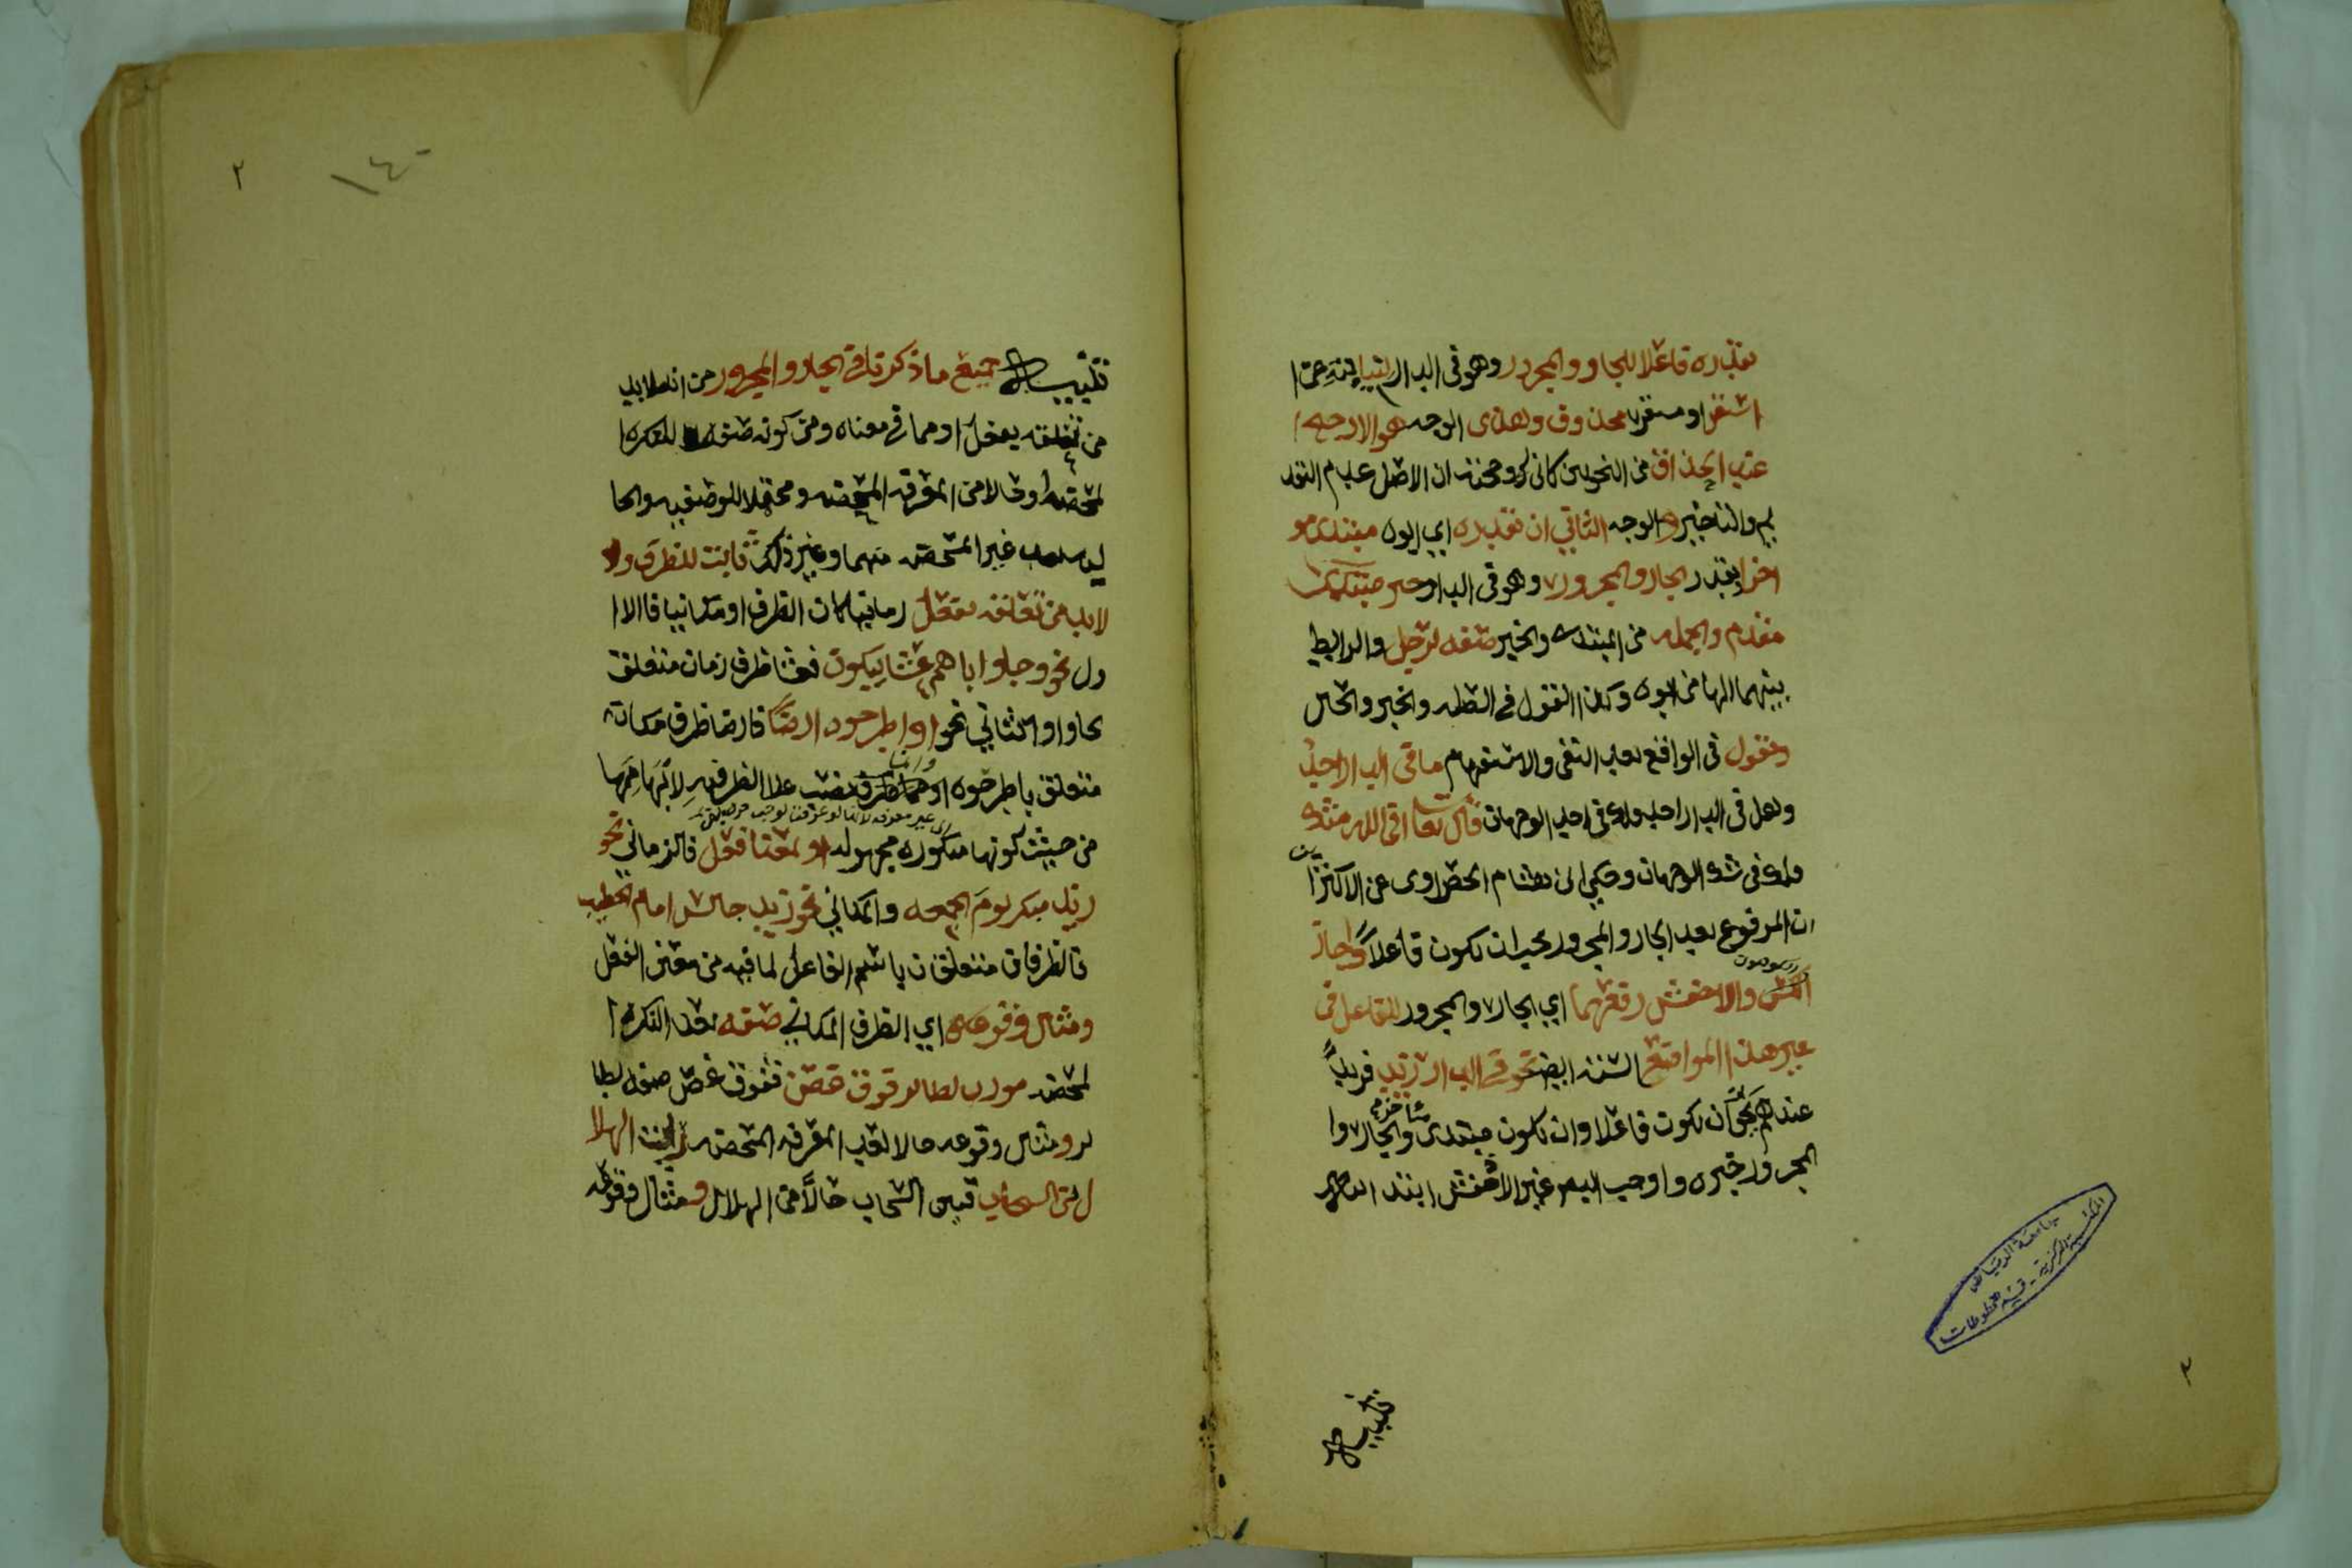 تقديره فاعلا للجار والمجرور وهو في الدار لنيابته عن ا
استقر او مستقر محذوف وهذى الوجه هو الارجح
عند الحذاق من النحويين كابن مالك وحجته ان الاصل عدم التقد
يم والتاخير والوجه الثاني ان تقديره اي ابوه مبتدى مو
اخرا يقدر الجار والمجرور وهو في الدار خبر مبتدى
مقدم والجمله من المبتدى والخبر صفه لرجل والرابط
بينهما الها من ابوه وكذا القول في الصله والخبر والحال
وتقول في الواقع بعد النفي والاستفهام ما في الدار احد
وهل في الدار احد ولك في احد الوجهان قال تعالى افي الله شك
ولك في شك الوجهان وحكى ابن هشام الخضراوى عن الاكثرين
ان المرفوع بعد الجار والمجرور يجب ان يكون فاعلاً واجاز
والاخفش رفعهما اي الجار والمجرور للفاعل في
غير هذا المواضع الستة ايضا نحو في الدار زيد فزيدٌ
عندهم يجوز ان يكون فاعلا وان يكون مبتدى مؤخر والجار وا
لمجرور خبره واوجب البصريون غير الاخفش ابتدائيته
تنبيه
تنبيه جميع ما ذكرناه في الجار والمجرور من انه لا بد
من تعلقه بفعل او مما في معناه ومن كونه صفه للنكره ا
لمحضه وحالا من المعرفه المحضه ومحتملا للوصفيه والحا
ليه بعد غير المحضه منهما وغير ذلك ثابت للظرف و
لا بد من تعلقه بفعل زمانيا كان الظرف او مكانيا فالا ا
ول نحو وجاوا اباهم عشا يبكون فعشا ظرف زمان متعلق
بجاوا والثاني نحو او اطرحوه ارضا فارضا ظرف مكان
متعلق باطرحوه وارضا نصب على الظرفيه لابهامها
من حيث كونها منكوره مجهوله او لمعنا فعل فالزماني نحو
زيد مبكر يوم الجمعه والمكاني نحو زيد جالس امام الخطيب
فالظرفان متعلقان باسم الفاعل لما فيه من معنى الفعل
ومثال وقوعه اي الظرف المكاني صفه بعد النكره ا
لمحضه مررت بطائر فوق غصن ففوق غصن صفه لطا
ئر ومثال وقوعه حالا بعد المعرفه المحضه رايت الهلا
ل بين السحاب فبين السحاب حالاً من الهلال ومثال وقوعه
١٤٠
٢
جامعة الرياض
المكتبة المركزية - قسم المخطوطات
٢